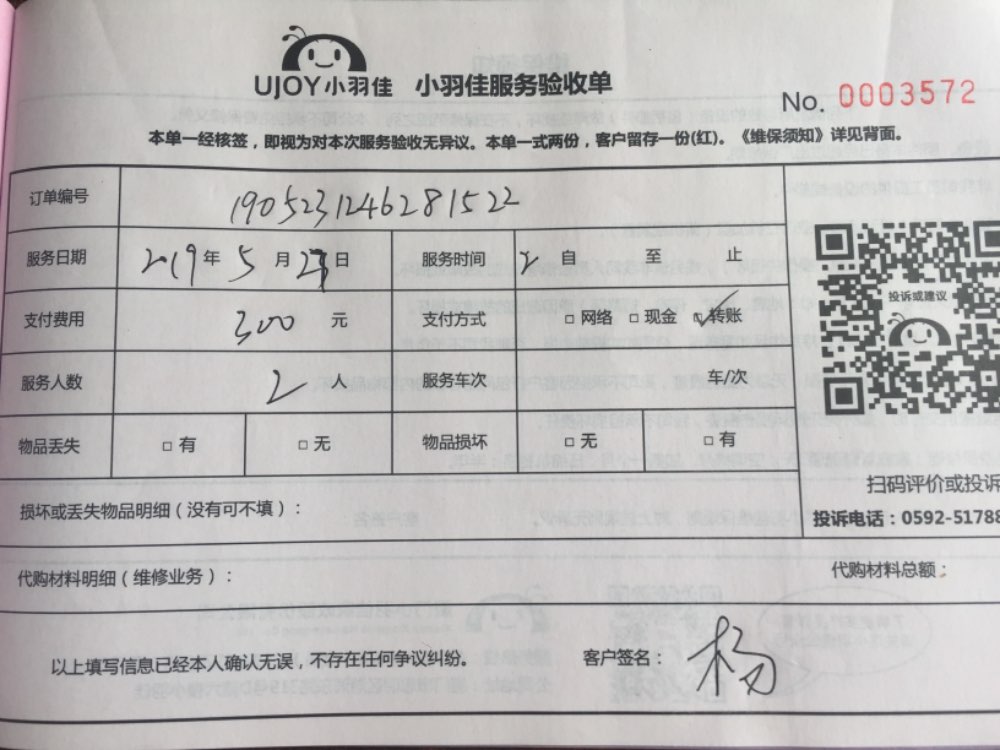 UJOY小羽佳 小羽佳服务验收单
No. 0003572
本单一经核签，即视为对本次服务验收无异议。本单一式两份，客户留存一份(红)。《维保须知》详见背面。
订单编号 1905231246281522
服务日期 2019年5月23日 服务时间 2 自 至 止
投诉或建议
支付费用 300 元 支付方式 □网络 □现金 ☑转账
服务人数 2 人 服务车次 车/次
物品丢失 □有 □无 物品损坏 □无 □有
扫码评价或投诉
损坏或丢失物品明细（没有可不填）：
投诉电话：0592-51788
代购材料明细（维修业务）： 代购材料总额：
以上填写信息已经本人确认无误，不存在任何争议纠纷。 客户签名： 杨